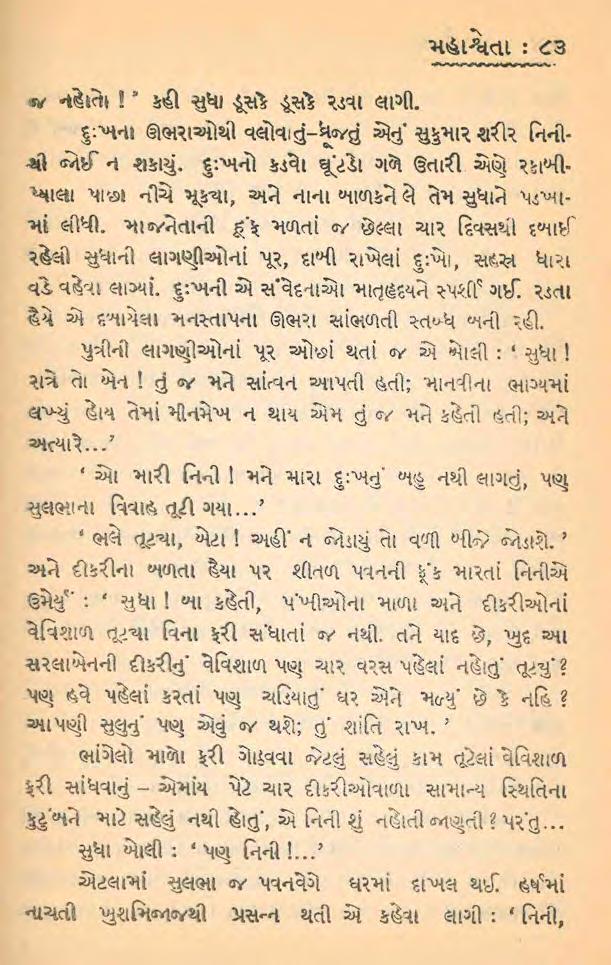 મહાશ્વેતા : ૮૩
જ નહોતો ! ’ કહી સુધા ડૂસકે ડૂસકે રડવા લાગી.
દુઃખના ઊભરાઓથી વલોવાતું–ધ્રૂજતું એનું સુકુમાર શરીર નિની-
થી જોઈ ન શકાયું. દુઃખનો કડવો ઘૂંટડો ગળે ઉતારી એણે રકાબી-
પ્યાલા પાછા નીચે મૂક્યા, અને નાના બાળકને લે તેમ સુધાને પડખા-
માં લીધી. માજનેતાની હૂંફ મળતાં જ છેલ્લા ચાર દિવસથી દબાઈ
રહેલી સુધાની લાગણીઓનાં પૂર, દાબી રાખેલાં દુઃખો, સહસ્ર ધારા
વડે વહેવા લાગ્યાં. દુઃખની એ સંવેદનાઓ માતૃહૃદયને સ્પર્શી ગઈ. રડતા
હૈયે એ દબાયેલા મનસ્તાપના ઊભરા સાંભળતી સ્તબ્ધ બની રહી.
પુત્રીની લાગણીઓનાં પૂર ઓછાં થતાં જ એ બોલી : ‘ સુધા !
રાત્રે તો બેન ! તું જ મને સાંત્વન આપતી હતી; માનવીના ભાગ્યમાં
લખ્યું હોય તેમાં મીનમેખ ન થાય એમ તું જ મને કહેતી હતી; અને
અત્યારે...’
‘ ઓ મારી નિની ! મને મારા દુઃખનું બહુ નથી લાગતું, પણ
સુલભાના વિવાહ તૂટી ગયા...’
‘ ભલે તૂટ્યા, બેટા ! અહીં ન જોડાયું તો વળી બીજે જોડાશે. ’
અને દીકરીના બળતા હૈયા પર શીતળ પવનની ફૂંક મારતાં નિનીએ
ઉમેર્યું : ‘ સુધા ! બા કહેતી, પંખીઓના માળા અને દીકરીઓનાં
વેવિશાળ તૂટ્યા વિના ફરી સંધાતાં જ નથી. તને યાદ છે, ખુદ આ
સરલાબેનની દીકરીનું વેવિશાળ પણ ચાર વરસ પહેલાં નહોતું તૂટ્યું ?
પણ હવે પહેલાં કરતાં પણ ચડિયાતું ઘર એને મળ્યું છે કે નહિ ?
આપણી સુલુનું પણ એવું જ થશે; તું શાંતિ રાખ. ’
ભાંગેલો માળો ફરી ગોઠવવા જેટલું સહેલું કામ તૂટેલાં વેવિશાળ
ફરી સાંધવાનું – એમાંય પેટે ચાર દીકરીઓવાળા સામાન્ય સ્થિતિના
કુટુંબને માટે સહેલું નથી હોતું, એ નિની શું નહોતી જાણતી ? પરંતુ...
સુધા બોલી : ‘ પણ નિની !...’
એટલામાં સુલભા જ પવનવેગે ઘરમાં દાખલ થઈ. હર્ષમાં
નાચતી ખુશમિજાજથી પ્રસન્ન થતી એ કહેવા લાગી : ‘ નિની,